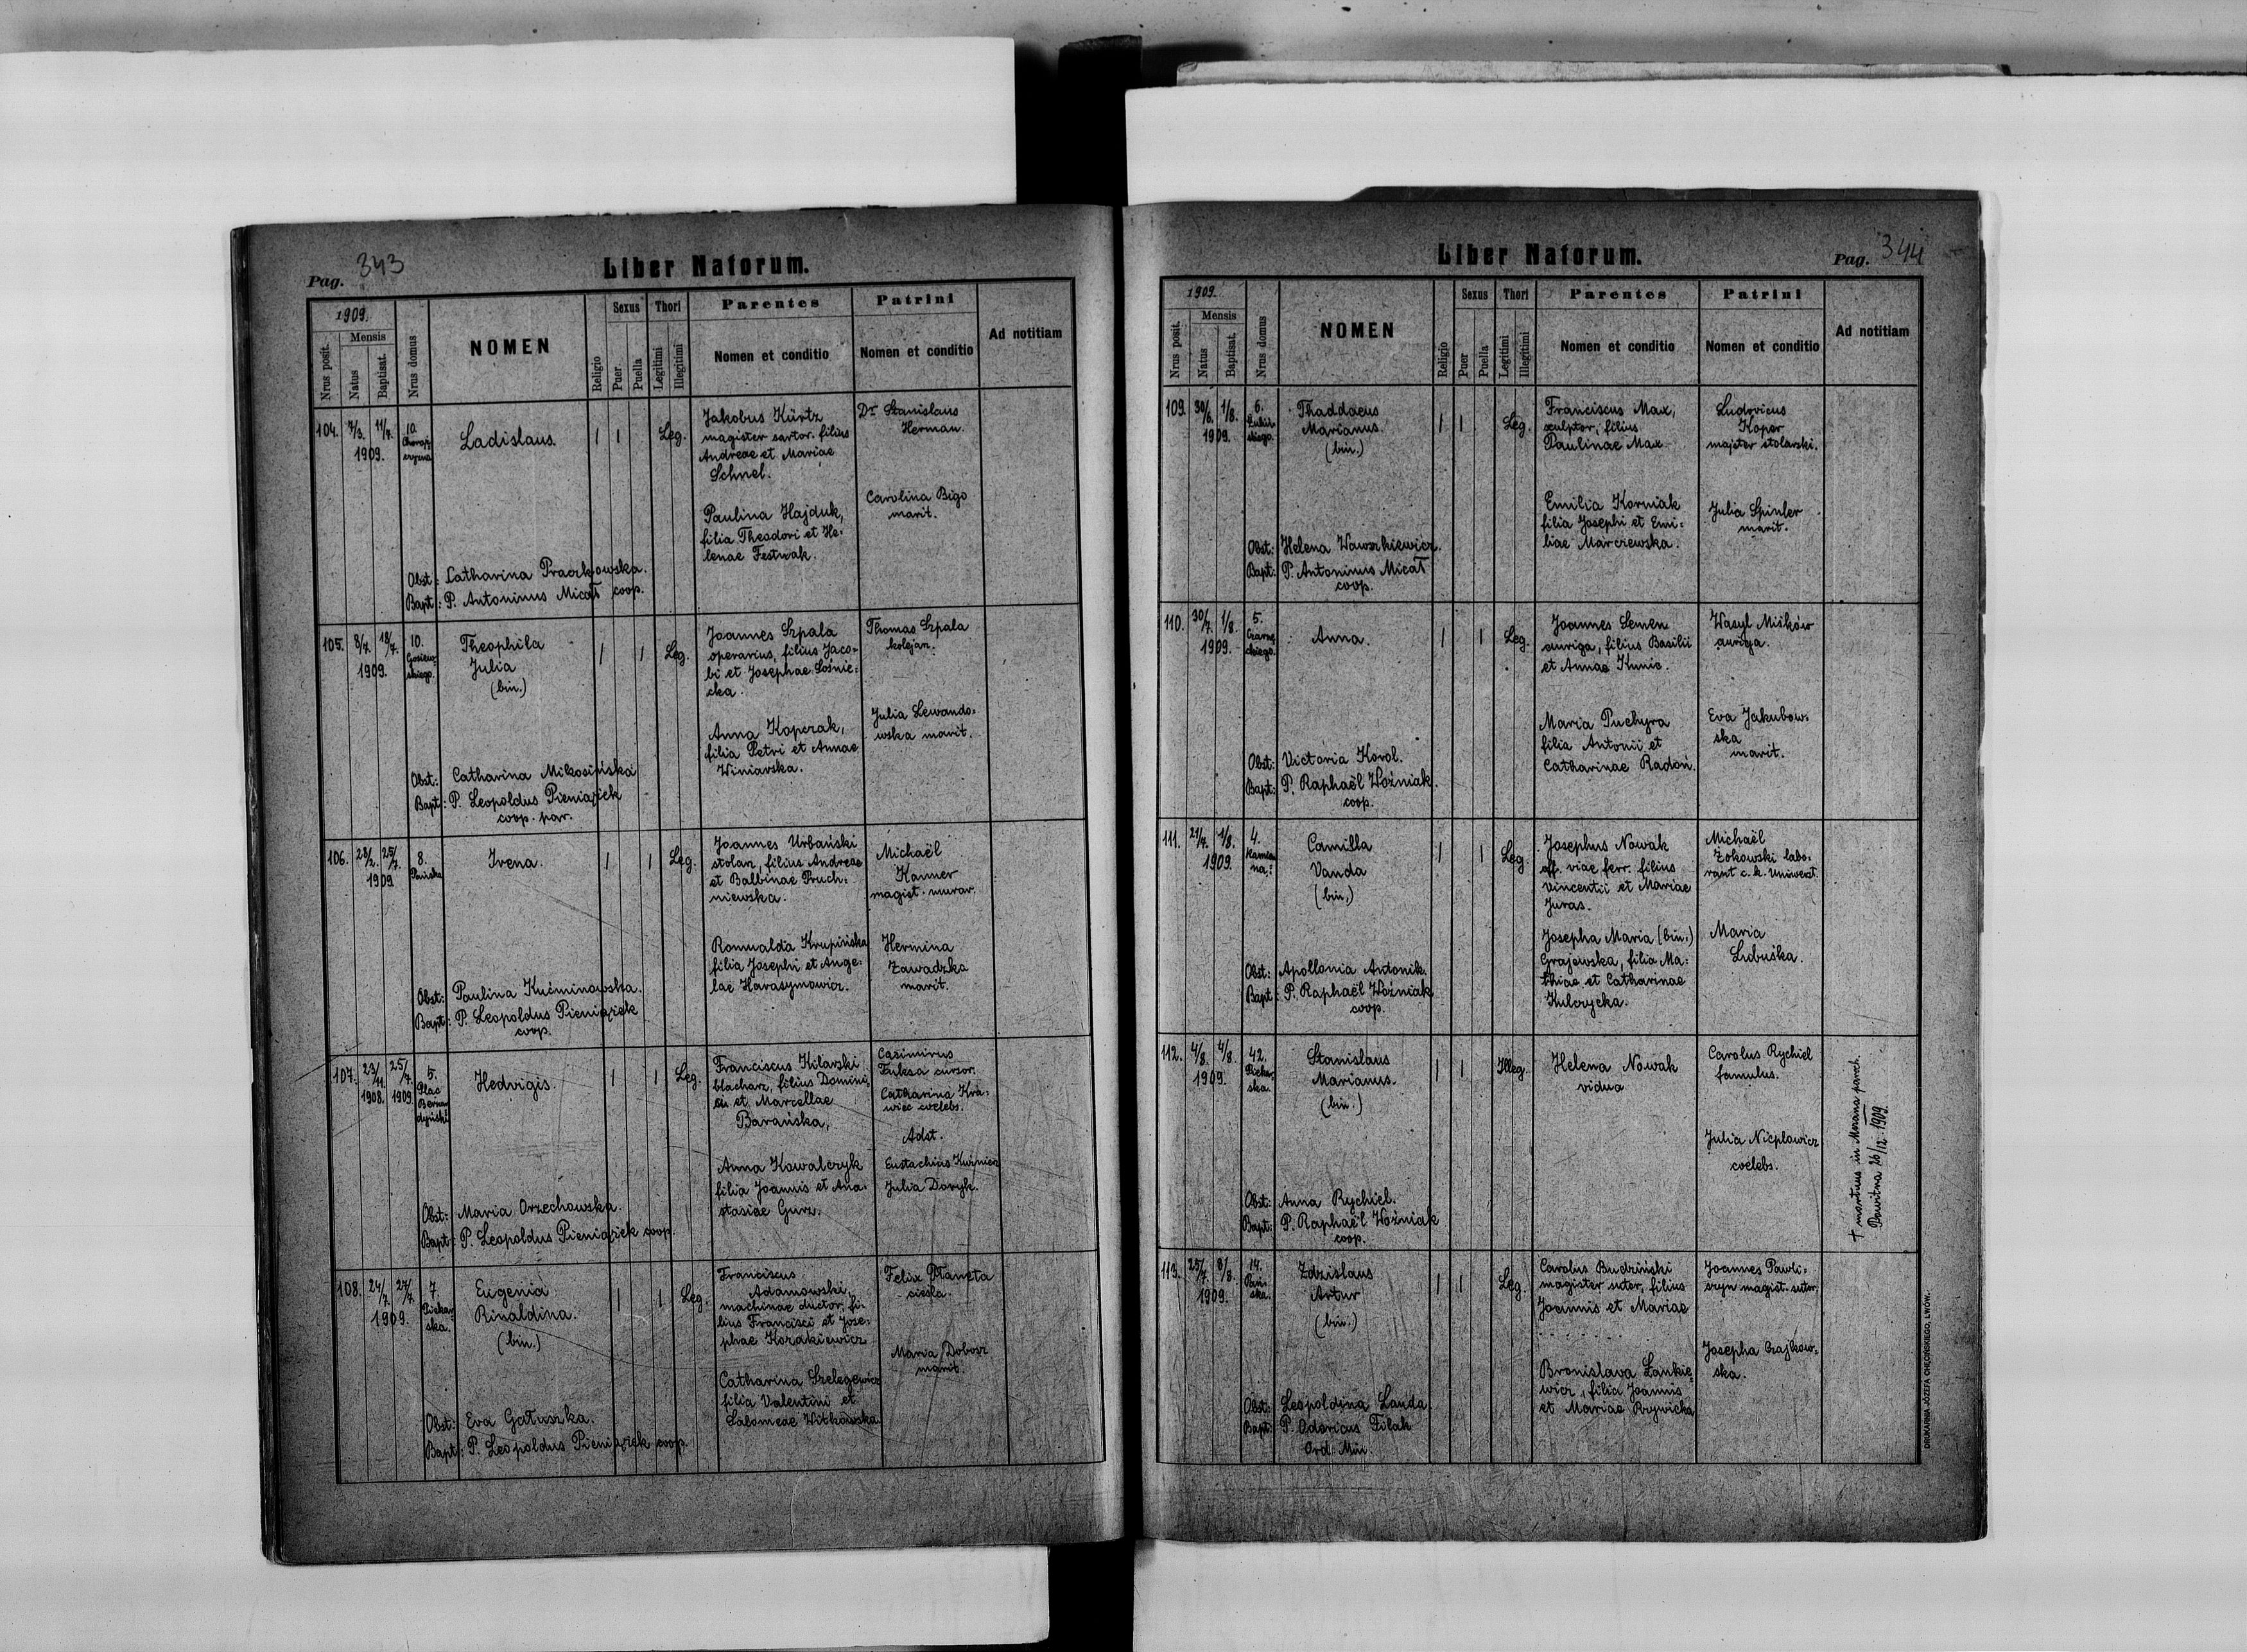 Pag. 343
Liber Natorum.
1909.
Mensis
Nrus posit.
Natus
Baptisat.
Nrus domus
NOMEN
Religio
Sexus
Puer
Puella
Thori
Legitimi
Illegitimi
Parentes
Nomen et conditio
Patrini
Nomen et conditio
Ad notitiam
104. 7/3. 11/7. 1909.
10.
Ladislaus.
Leg.
Jakobus Kürtz
magister sartor. filius
Andreae et Mariae
Schnel.
Paulina Hajduk,
filia Theodori et He-
lenae Festnak.
Dr Stanislaus
Herman.
Carolina Bigo
marit.
Obst.: Catharina Praczkowska.
Bapt: P. Antoninus Micał coop.
105. 8/7. 18/7. 1909.
10.
Gosiew-
skiego.
Theophila
Julia
(bin.)
Leg.
Joannes Szpala
operarius, filius Jaco-
bi et Josephae Łośnie-
cka.
Anna Kopczak,
filia Petri et Annae
Winiarska.
Thomas Szpala
kolejarz.
Julia Lewando-
wska marit.
Obst: Catharina Mikosińska
Bapt: P. Leopoldus Pieniążek
coop. par.
106. 28/2. 25/7. 1909
8.
Pańska
Irena.
Leg.
Joannes Urbański
stolarz, filius Andreae
et Balbinae Pruch-
niewska.
Romualda Krupińska
filia Josephi et Ange-
lae Harasymowicz.
Michaël
Kanner
magist. murar.
Hermina
Zawadzka
marit.
Obst: Paulina Kuźminowska.
Bapt: P. Leopoldus Pieniążek
coop.
107. 23/11. 1908. 25/7. 1909.
5.
Plac
Bernar
dyński
Hedvigis.
Leg.
Franciscus Kilarski
blacharz, filius Domini-
ci et Marcellae
Barańska,
Anna Kowalczyk
filia Joannis et Ana-
stasiae Gurz.
Casimirus
Fuksa cursor.
Catharina Kra-
wiec coelebs.
Adst.
Eustachius Kuśnierz
Julia Dovyk.
Obst: Maria Orzechowska.
Bapt: P. Leopoldus Pieniążek coop.
108. 24/7. 27/7. 1909.
7.
Piekar-
ska.
Eugenia
Rinaldina.
(bin.)
Leg.
Franciscus
Adamowski,
machinae ductor, fi-
lius Francisci et Jose-
phae Kozakiewicz
Catharina Szelegewicz
filia Valentini et
Salomeae Witkowska
Felix Płaneta
cieśla.
Maria Dobosz
marit.
Obst: Eva Gałuszka.
Bapt: P. Leopoldus Pieniążek coop.
Liber Natorum.
Pag. 344
1909.
Mensis
Nrus posit.
Natus
Baptisat.
Nrus domus
NOMEN
Religio
Sexus
Puer
Puella
Thori
Legitimi
Illegitimi
Parentes
Nomen et conditio
Patrini
Nomen et conditio
Ad notitiam
109. 30/6. 1/8. 1909.
6.
Thaddaeus
Marianus.
(bin.)
Leg.
Franciscus Max,
sculptor, filius
Paulinae Max
Emilia Korniak
filia Josephi et Emi-
liae Marczewska.
Ludovicus
Koper
majster stolarski.
Julia Spinler
marit.
Obst: Helena Wawszkiewicz.
Bapt: P. Antoninus Micał
coop.
110. 30/7. 1/8. 1909.
5.
Czarne-
ckiego.
Anna.
Leg.
Joannes Semen
auriga, filius Basilii
et Annae Kunic.
Maria Puchyra
filia Antonii et
Catharinae Radoń.
Wasyl Miśków
auriga.
Eva Jakubow-
ska
marit.
Obst: Victoria Korol.
Bapt: P. Raphaël Woźniak.
coop.
111. 21/7. 1/8. 1909.
4.
Kamien
na.
Camilla
Vanda
(bin.)
Leg.
Josephus Nowak
off. viae ferr. filius
Vincentii et Mariae
Juras.
Josepha Maria (bin.)
Grajewska, filia Ma-
thiae et Catharinae
Kulczycka.
Michaël
Żokowski labo-
rant c. k. Uniwerst.
Maria
Lubuśka.
Obst: Apollonia Antonik.
Bapt: P. Raphaël Woźniak
coop.
112. 4/8. 4/8. 1909.
42.
Piekar-
ska.
Stanislaus
Marianus.
(bin.)
Illeg.
Helena Nowak
vidua
Carolus Rychiel
famulus.
Julia Nieplowicz
coelebs.
† mortuus in Morana paroch.
Dawitna 26/12. 1909.
Obst: Anna Rychiel.
Bapt: P. Raphaël Woźniak
coop.
113. 25/7. 8/8. 1909.
14.
Pań-
ska.
Zdzislaus
Artur
(bin.)
Leg.
Carolus Budziński
magister sutor, filius
Joannis et Mariae
. . . . . .
Bronislava Łankie-
wicz, filia Joannis
et Mariae Brywicka
Joannes Pawli-
szyn magist. sutor.
Josepha Czajkow-
ska.
Obst: Leopoldina Landa
Bapt: P. Odoricus Filak
Ord. Min.
DRUKARNIA JÓZEFA CHĘCIŃSKIEGO, LWÓW.